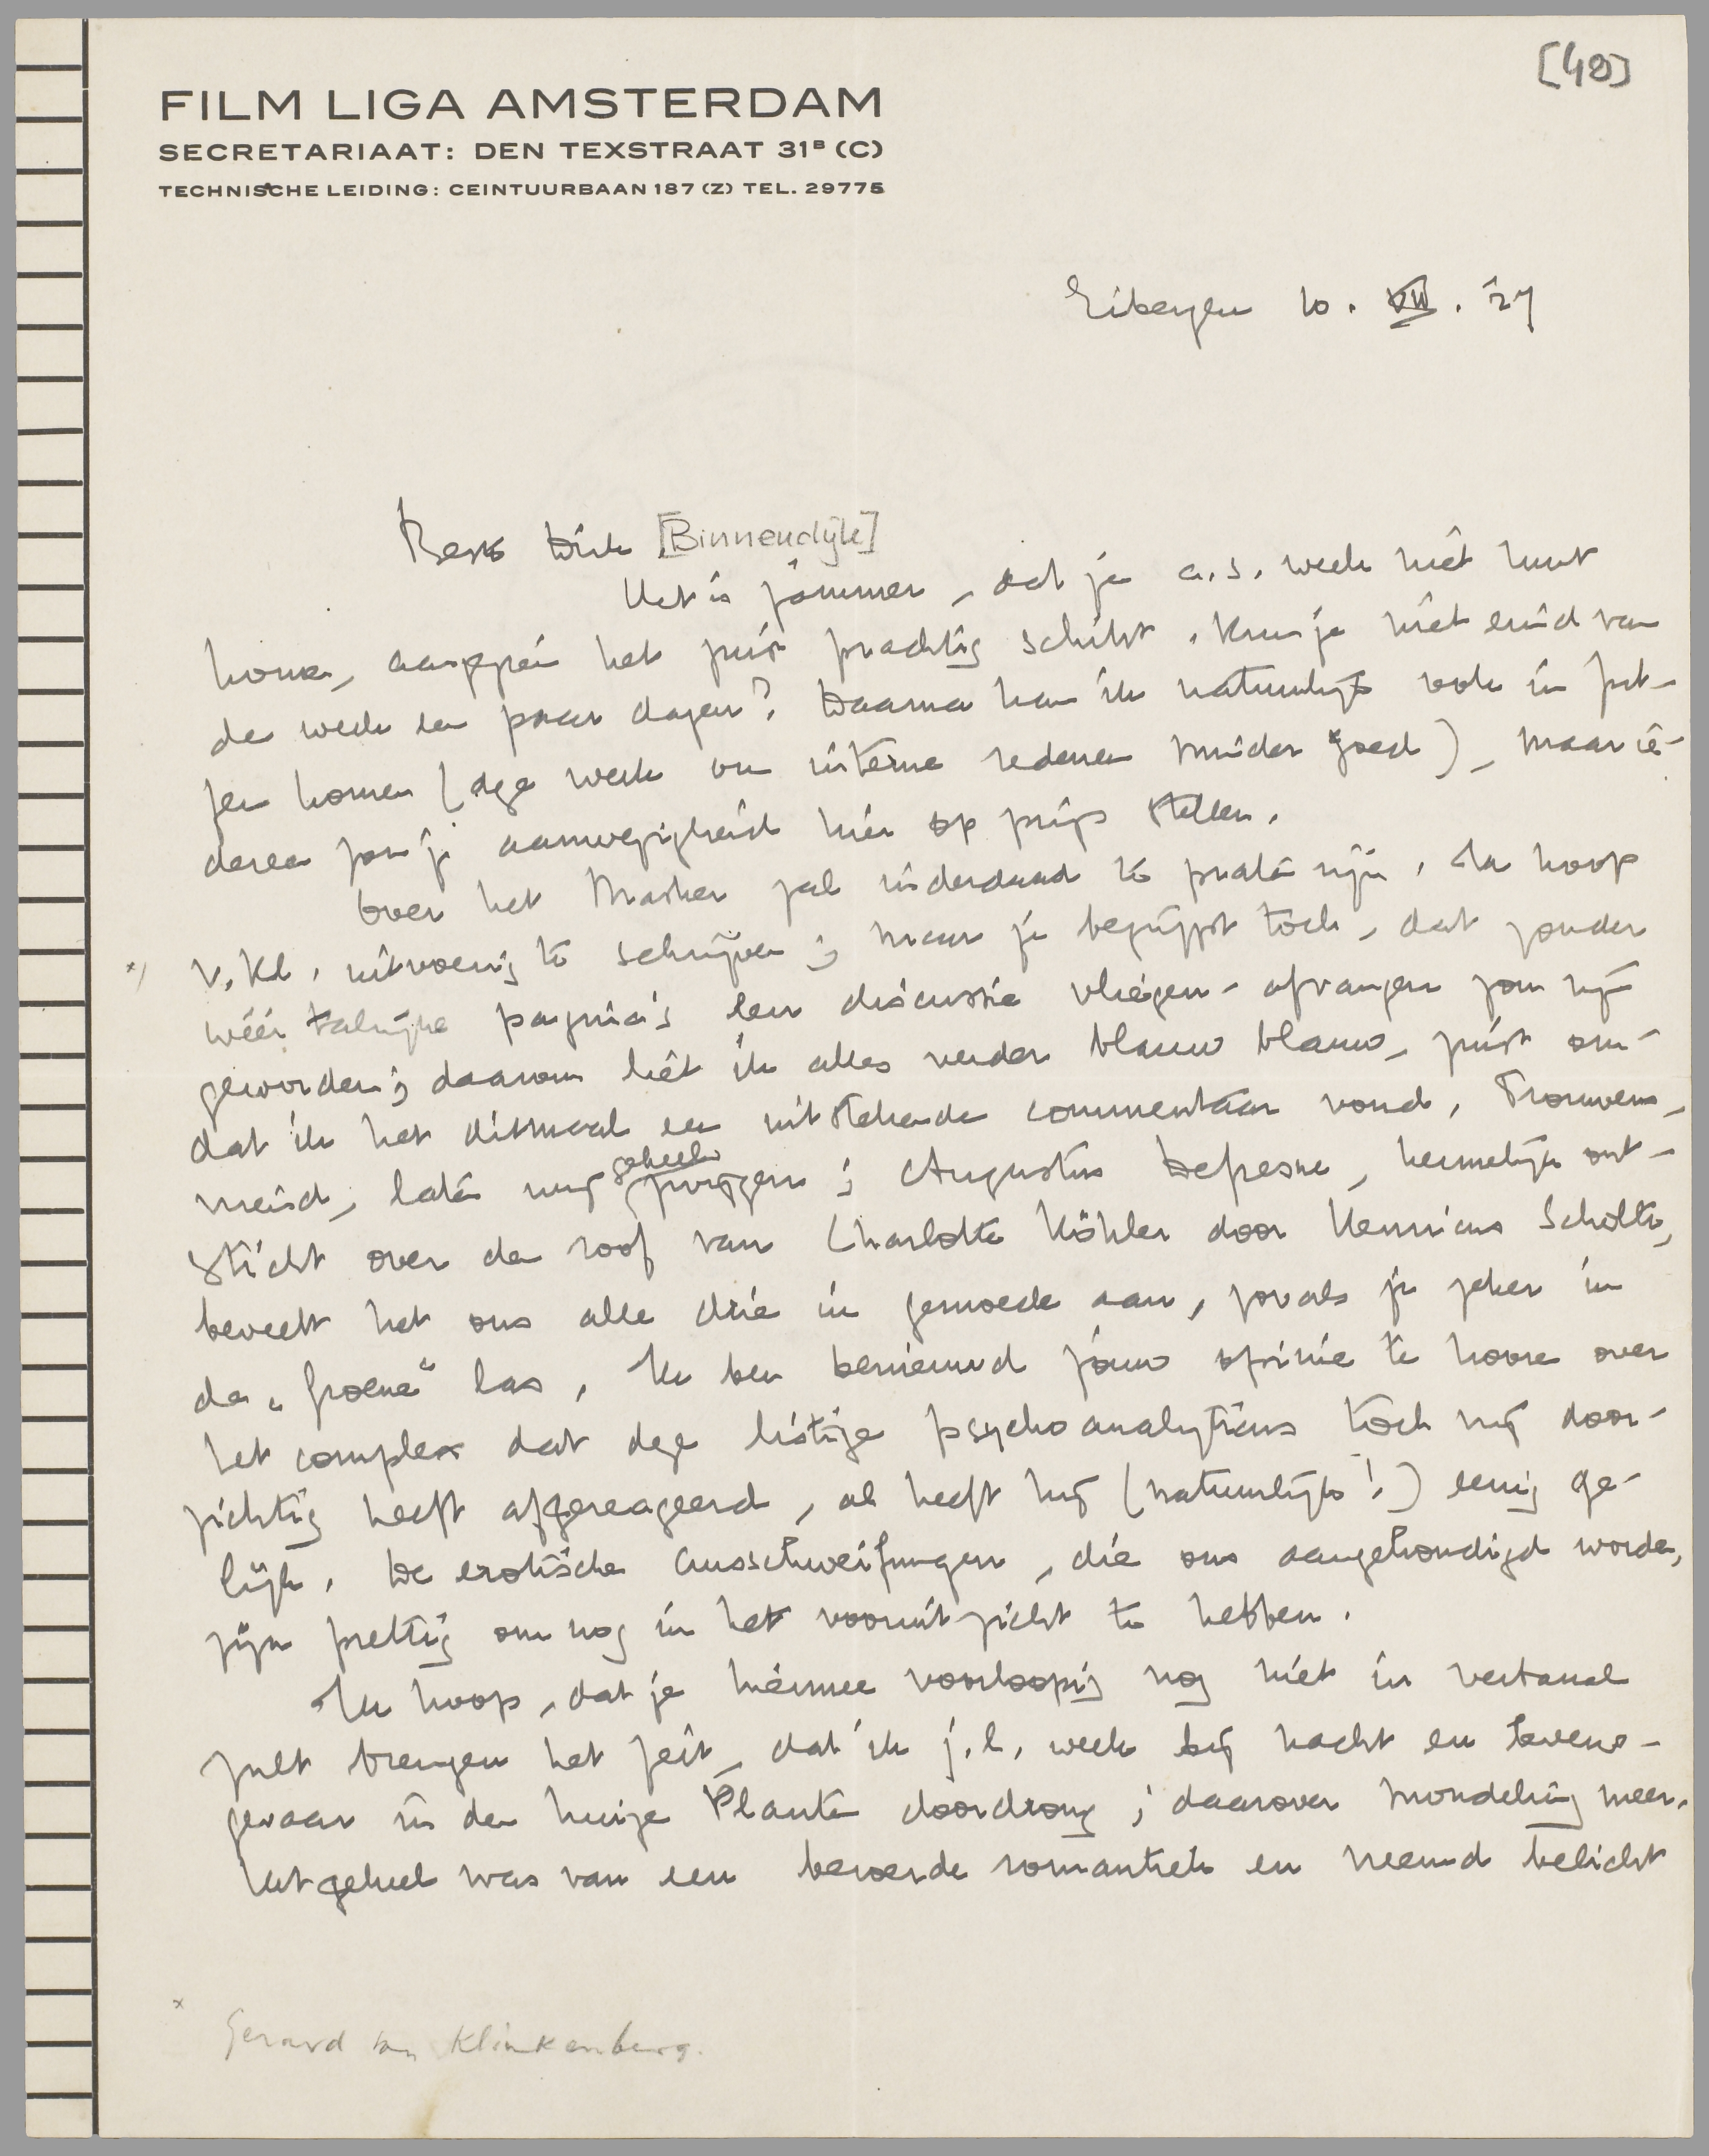 [40]
FILM LIGA AMSTERDAM
SECRETARIAAT: DEN TEXSTRAAT 31ᴮ (C)
TECHNISCHE LEIDING: CEINTUURBAAN 187 (Z) TEL. 29775
Eibergen 10. XII. '27
Beste Dick [Binnendijk]
Het is jammer, dat je a.s. week niet kunt
komen, aangezien het juist prachtig schikt. Kun je niet eind van
de week een paar dagen? Daarna kan ik natuurlijk ook in Zut-
fen komen (deze week om interne redenen minder goed), maar ie-
dereen zou je aanwezigheid hier op prijs stellen.
Over het Masker zal inderdaad te praten zijn. Ik hoop
*) v. Kl. uitvoerig te schrijven; maar je begrijpt toch, dat zonder
wéér talrijke pagina's een discussie vliegen-afvangen zou zijn
geworden; daarom liet ik alles verder blauw blauw, juist om-
dat ik het ditmaal een uitstekende commentaar vond. Trouwens,
meid, laten wij geheel zwijgen; Augustus Defresne, heimelijk ont-
sticht over de roof van Charlotte Köhler door Henricus Scholte,
beveelt het ons alle drie in gemoede aan, zooals je zeker in
de „Groene" las. Ik ben benieuwd jouw opinie te hooren over
het complex dat deze listige psychoanalyticus toch vrij door-
zichtig heeft afgereageerd, al heeft hij (natuurlijk!) eenig ge-
lijk. De erotische Ausschweifungen, die ons aangekondigd worden,
zijn prettig om nog in het vooruitzicht te hebben.
Ik hoop, dat je hiermee voorloopig nog niet in verband
zult brengen het feit, dat ik j.l. week bij nacht en levens-
gevaar in den huize Planten doordrong; daarover mondeling meer.
Het geheel was van een beroerde romantiek en vreemd belicht
* Gerard van Klinkenberg.